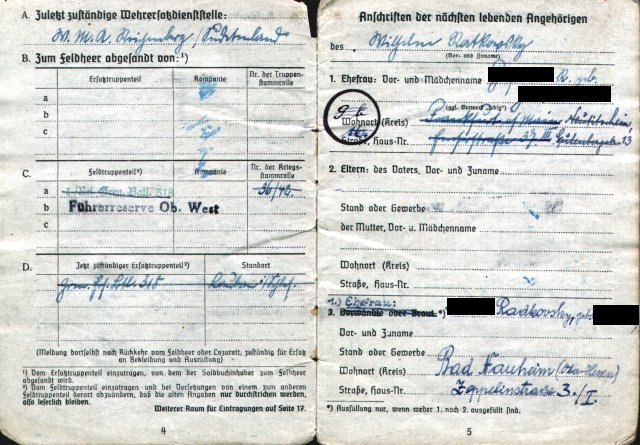 A. Zuletzt zuständige Wehrersatzdienststelle:
W. M. A. Reichenberg, Sudetenland
B. Zum Feldheer abgesandt von:¹)
Ersatztruppenteil
Kompanie
Nr. der Truppenstammrolle
a
b
c
C.
Feldtruppenteil²)
Kompanie
Nr. der Kriegsstammrolle
a
36/42
b Führerreserve Ob. West
c
D.
Jetzt zuständiger Ersatztruppenteil³)
Standort
318
(Meldung dortselbst nach Rückkehr vom Feldheer oder Lazarett, zuständig für Ersatz an Bekleidung und Ausrüstung)
¹) Vom Ersatztruppenteil einzutragen, von dem der Soldbuchinhaber zum Feldheer abgesandt wird.
²) Vom Feldtruppenteil einzutragen und bei Versetzungen von einem zum anderen Feldtruppenteil derart abzuändern, daß die alten Angaben nur durchstrichen werden, also leserlich bleiben.
Weiterer Raum für Eintragungen auf Seite 17.
4
Anschriften der nächsten lebenden Angehörigen
des Wilhelm Radkovsky
(Vor- und Zuname)
1. Ehefrau: Vor- und Mädchenname
R. geb.
(ggf. Vermerk „ledig“)
Wohnort (Kreis) Frankfurt a/Main
Straße, Haus-Nr.
2. Eltern: des Vaters, Vor- und Zuname
Stand oder Gewerbe
der Mutter, Vor- u. Mädchenname
Wohnort (Kreis)
Straße, Haus-Nr.
1.) Ehefrau:
3. Verwandte oder Braut:*)
Radkovsky, geb.
Vor- und Zuname
Stand oder Gewerbe
Wohnort (Kreis) Bad Nauheim (Ober-Hessen)
Straße, Haus-Nr. Zeppelinstrasse 3./I
*) Ausfüllung nur, wenn weder 1. noch 2. ausgefüllt sind.
5